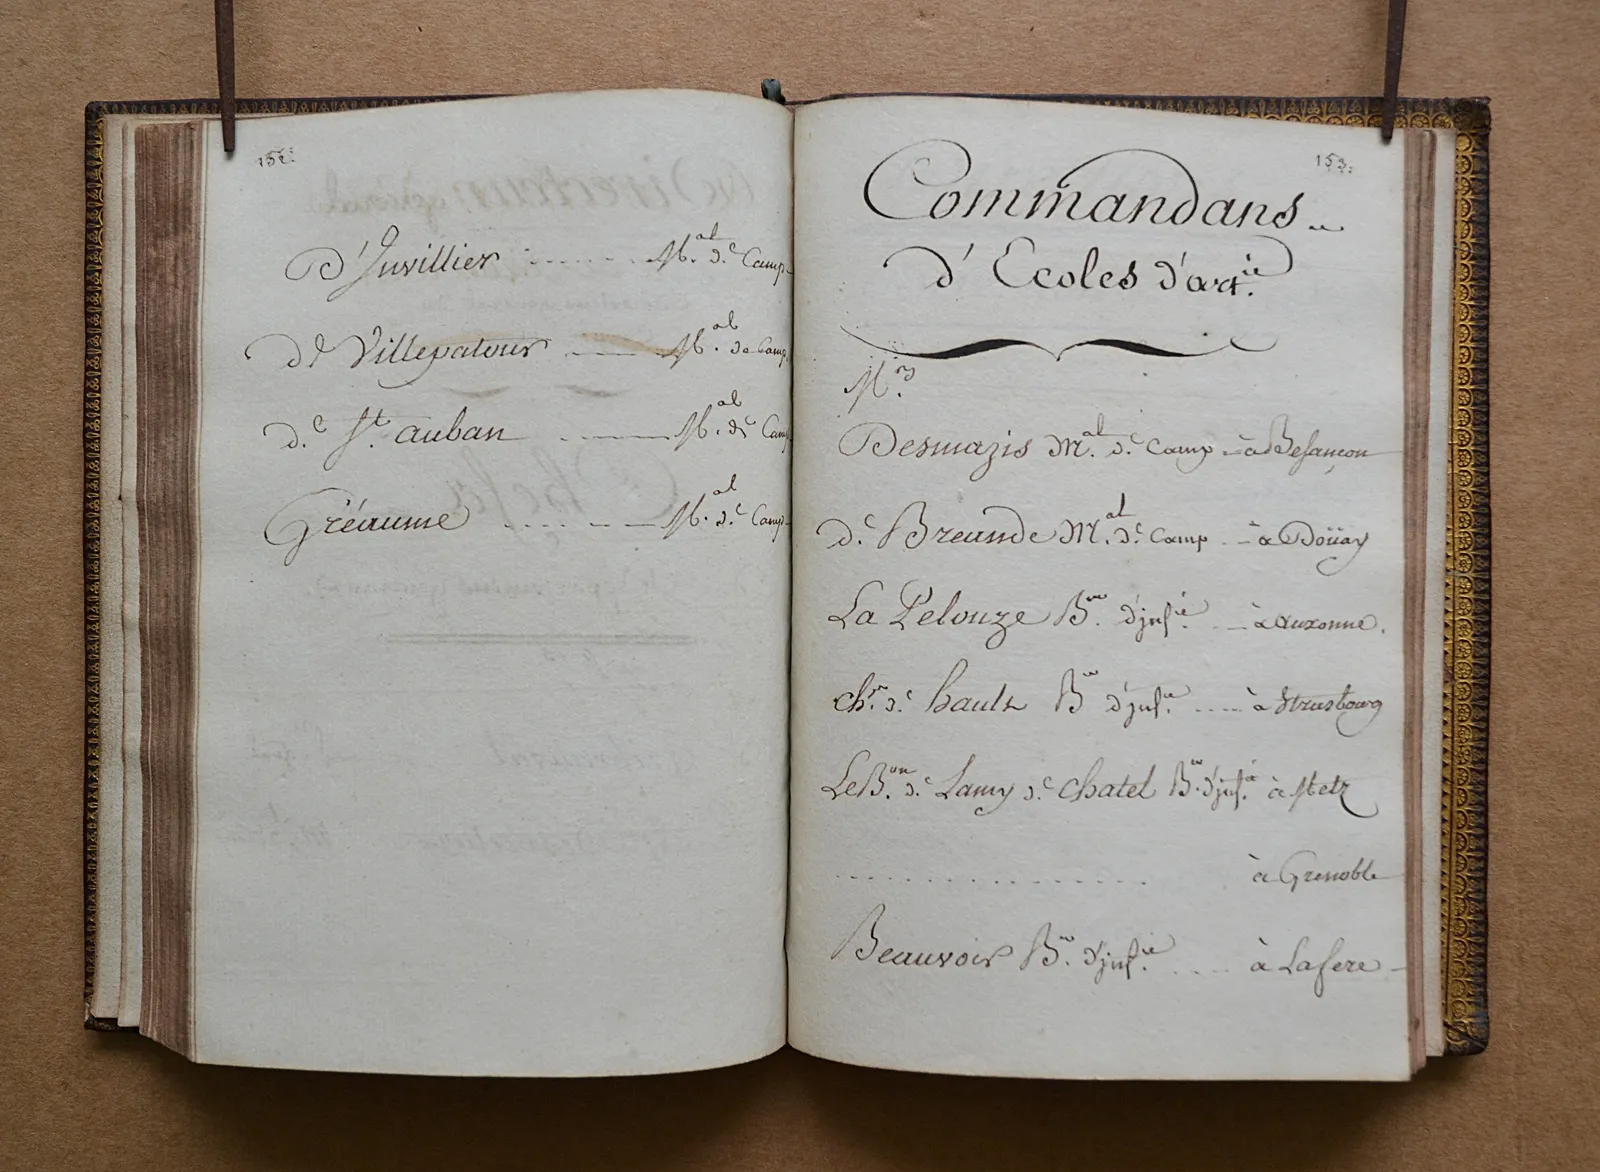 152:
D'Juvillier ........ M.al d.e Camp
de Villepatour ........ M.al de Camp
d.e S.t auban ........ M.al d.e Camp
Gréaume ........ M.al d.e Camp
153:
Commandans
d'Ecoles d'art.ie
M.rs
Desmazis M.al d.e Camp - à Besançon
d.e Breande M.al d.e Camp - à Doüay
La Pelouze B.er d'jnf.ie - à auxonne.
ch.er d.e hault B.er d'jnf.ie .... à Strasbourg
Le B.on d.e Lamy d.e Chatel B.er d'jnf.ie à Metz
.................... à Grenoble
Beauvoir B.er d'jnf.ie .... à Lafere